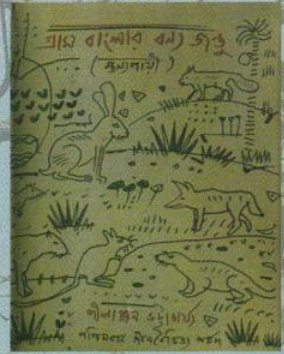 গ্রাম বাংলার বন্য জন্তু
(স্তন্যপায়ী)
শীলাঞ্জন ভট্টাচার্য
পশ্চিমবঙ্গ জীববৈচিত্র্য পর্ষদ